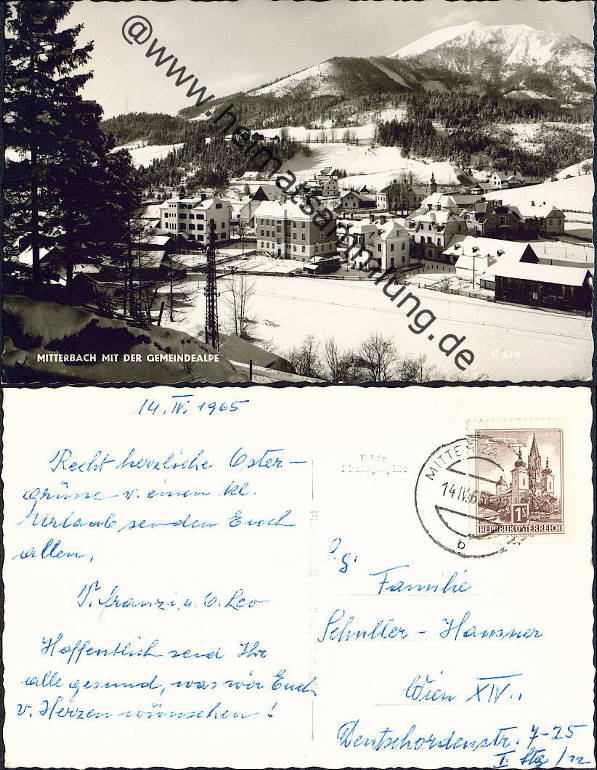 @www.heimatsammlung.de
MITTERBACH MIT DER GEMEINDEALPE
C 510
14. IV. 1965
Recht herzliche Oster-
grüsse v. einem kl.
Urlaub senden Euch
allen,
T. Franzi u. O. Leo
Hoffentlich seid Ihr
alle gesund, was wir Euch
v. Herzen wünschen!
Echte
Photographie
14.IV.65
b
1S
REPUBLIK ÖSTERREICH
Familie
Schuller - Hausner
Wien XIV.,
Deutschordenstr. 7-25
I. Stg/12